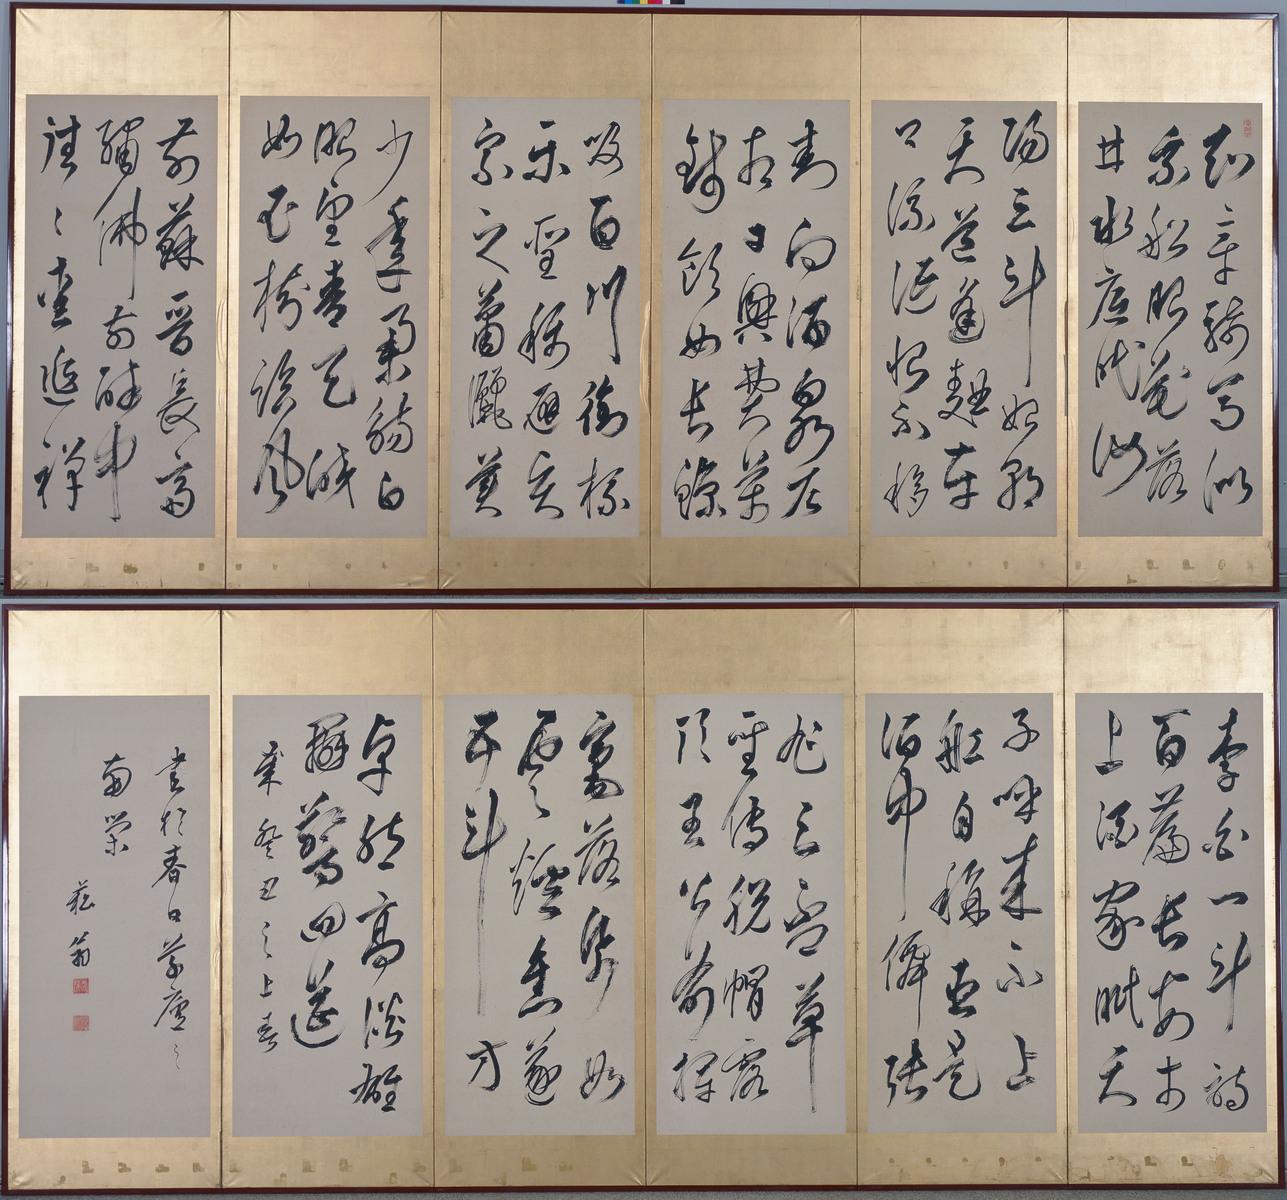 知章騎馬似
乘船眼花落
井水底眠汝
陽三斗始朝
天道逢麹車
口流涎恨不移
封向酒泉左
相日興費萬
錢飲如長鯨
吸百川銜杯
樂聖稱避賢
宗之蕭灑美
少年舉觴白
眼望青天皎
如玉樹臨風
前蘇晋長齋
繡佛前醉中
往々愛逃禪
李白一斗詩
百篇長安市
上酒家眠天
子呼来不上
船自稱臣是
酒中僊張
旭三盃草
聖傳脱帽露
頂王公前揮
毫落紙如
雲煙焦遂
五斗方
卓然高談雄
辯驚四筵
歳癸丑之上春
書於春日草廬之
南栄
菘翁